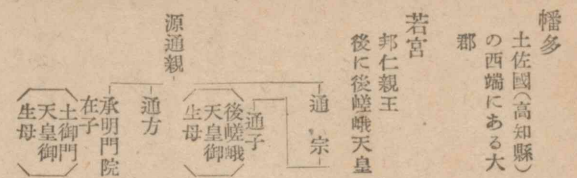 幡多
土佐國(高知縣)
の西端にある大
郡
若宮
邦仁親王
後に後嵯峨天皇
源通親
通宗
通子
後嵯峨
天皇御
生母
通方
承明門院
在子
土御門
天皇御
生母